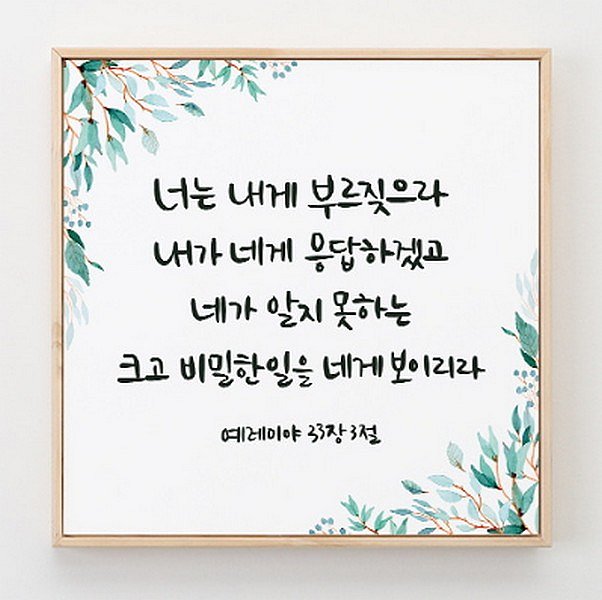 너는 내게 부르짖으라
내가 네게 응답하겠고
네가 알지 못하는
크고 비밀한 일을 네게 보이리라
예레미야 33장 3절